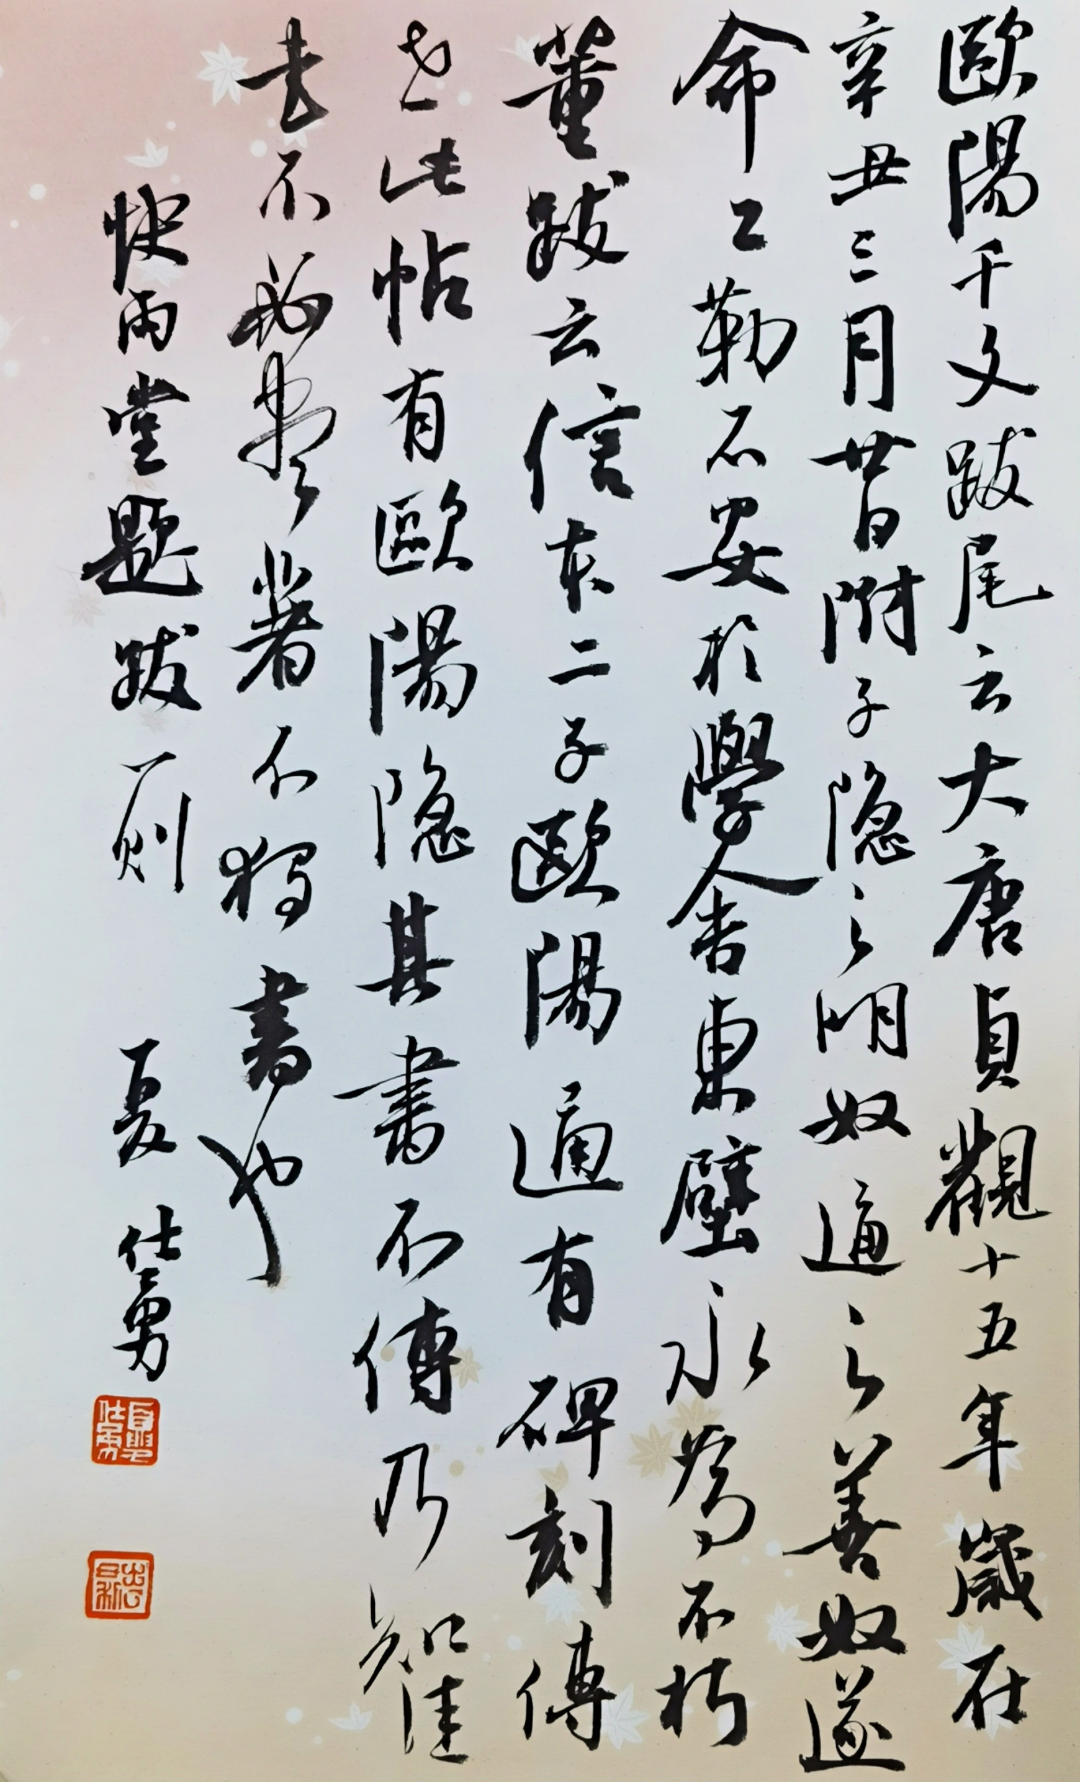 歐陽千文跋尾云大唐貞觀十五年歲在
辛丑三月廿日附子隱之明奴通之善奴遂
命工勒石安於學舍東壁永為不朽
董跋云信本二子歐陽通有碑刻傳
世此帖有歐陽隱其書不傳乃知佳
書不盡著不獨書也
快雨堂題跋一則
夏仕勇